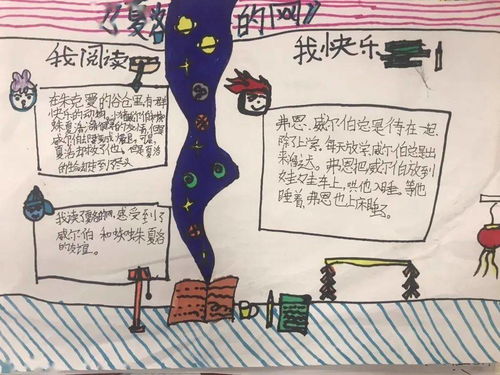 《夏洛的网》
我阅读
我快乐
在朱克曼的谷仓里,有一群
快乐的动物,小猪威尔伯和蜘
蛛夏洛
威尔伯
夏洛却救了他,但是夏洛
的生命走到了尽头
我读了夏洛的网,感受到了
威尔伯 和蜘蛛朱夏洛
的友谊。
弗恩、威尔伯总是待在一起,
除了上学,每天放学,威尔伯总是出
来接她。弗恩把威尔伯放到
娃娃车上,哄他入睡。等他
睡着,弗恩也上床睡了。